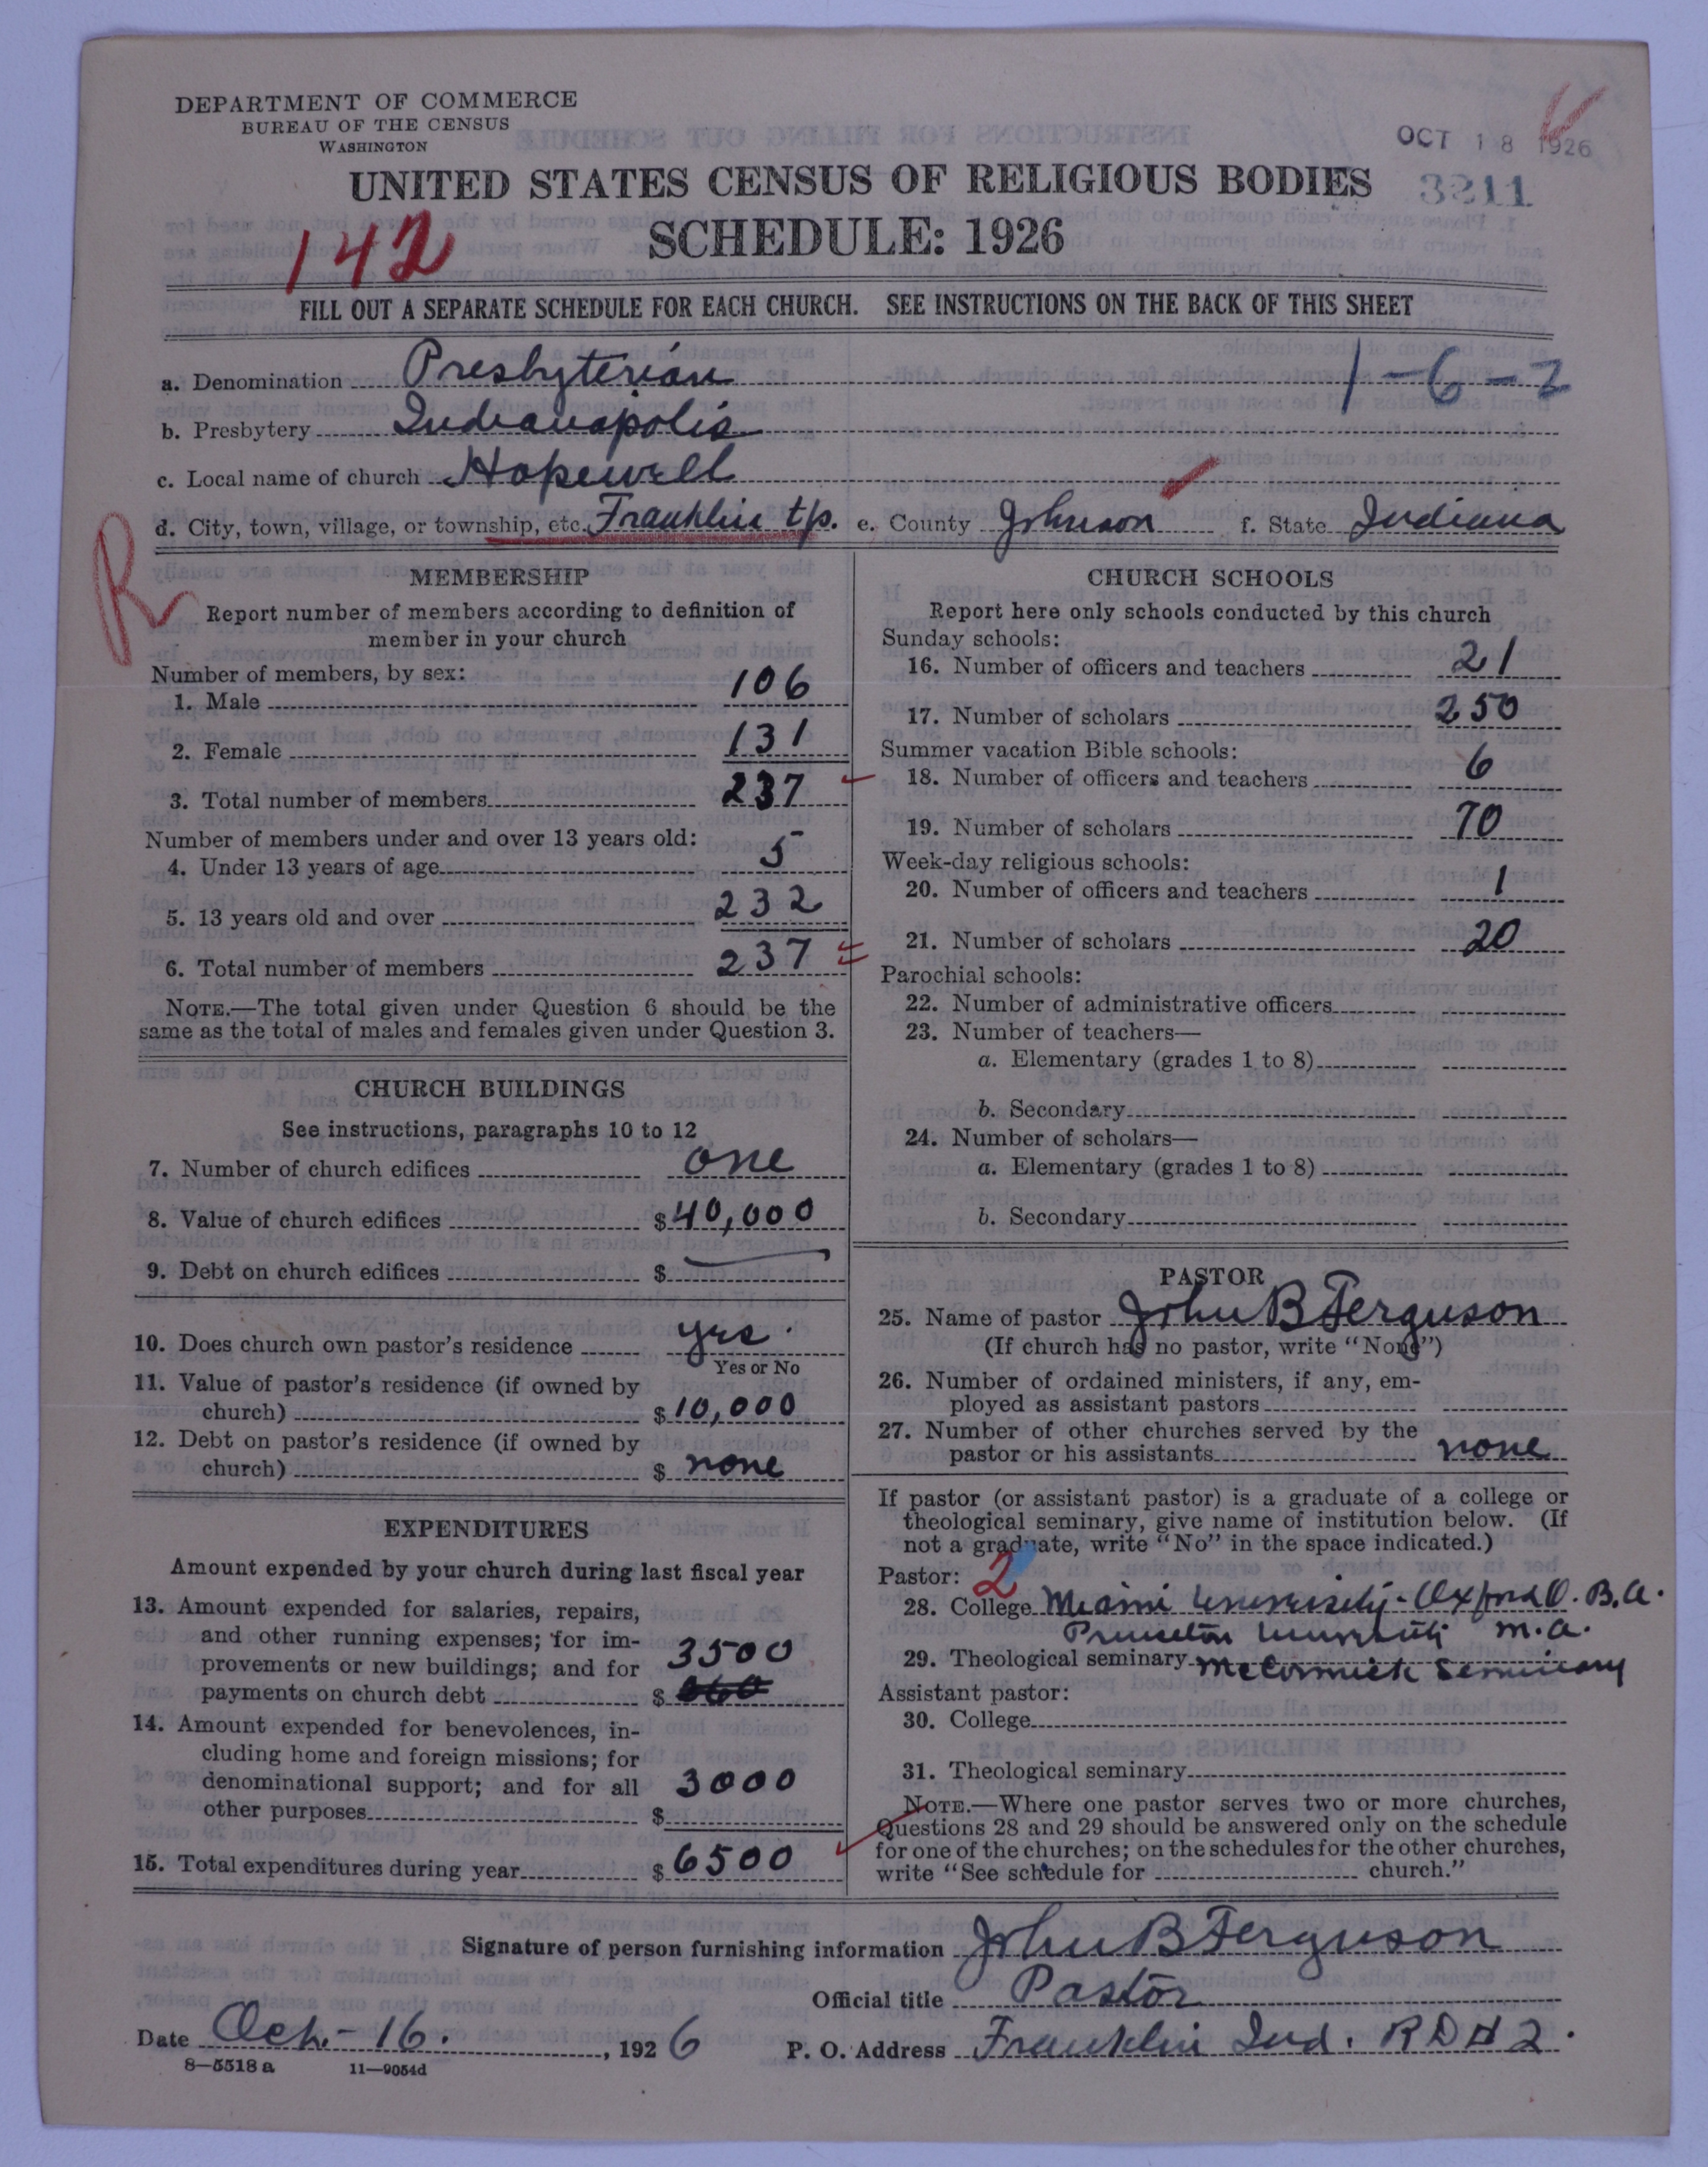 DEPARTMENT OF COMMERCE
BUREAU OF THE CENSUS
WASHINGTON
OCT 18 1926
UNITED STATES CENSUS OF RELIGIOUS BODIES
3211
SCHEDULE: 1926
142
FILL OUT A SEPARATE SCHEDULE FOR EACH CHURCH. SEE INSTRUCTIONS ON THE BACK OF THIS SHEET
a. Denomination Presbyterian 1-6-2
b. Presbytery Indianapolis
c. Local name of church Hopewell
d. City, town, village, or township, etc. Franklin tp. e. County Johnson f. State Indiana
R
MEMBERSHIP
Report number of members according to definition of
member in your church
Number of members, by sex:
1. Male 106
2. Female 131
3. Total number of members 237
Number of members under and over 13 years old:
4. Under 13 years of age 5
5. 13 years old and over 232
6. Total number of members 237
NOTE.—The total given under Question 6 should be the
same as the total of males and females given under Question 3.
CHURCH BUILDINGS
See instructions, paragraphs 10 to 12
7. Number of church edifices one
8. Value of church edifices $40,000
9. Debt on church edifices $
10. Does church own pastor's residence yes
Yes or No
11. Value of pastor's residence (if owned by
church) $10,000
12. Debt on pastor's residence (if owned by
church) $ none
EXPENDITURES
Amount expended by your church during last fiscal year
13. Amount expended for salaries, repairs,
and other running expenses; for im-
provements or new buildings; and for 3500
payments on church debt $
14. Amount expended for benevolences, in-
cluding home and foreign missions; for
denominational support; and for all 3000
other purposes $
15. Total expenditures during year $6500
CHURCH SCHOOLS
Report here only schools conducted by this church
Sunday schools:
16. Number of officers and teachers 21
17. Number of scholars 250
Summer vacation Bible schools:
18. Number of officers and teachers 6
19. Number of scholars 70
Week-day religious schools:
20. Number of officers and teachers 1
21. Number of scholars 20
Parochial schools:
22. Number of administrative officers
23. Number of teachers—
a. Elementary (grades 1 to 8)
b. Secondary
24. Number of scholars—
a. Elementary (grades 1 to 8)
b. Secondary
PASTOR
25. Name of pastor John B Ferguson
(If church has no pastor, write "None")
26. Number of ordained ministers, if any, em-
ployed as assistant pastors
27. Number of other churches served by the
pastor or his assistants none
If pastor (or assistant pastor) is a graduate of a college or
theological seminary, give name of institution below. (If
not a graduate, write "No" in the space indicated.)
Pastor: 2
28. College Miami University - Oxford O. B.A.
Princeton University M.A.
29. Theological seminary McCormick Seminary
Assistant pastor:
30. College
31. Theological seminary
NOTE.—Where one pastor serves two or more churches,
Questions 28 and 29 should be answered only on the schedule
for one of the churches; on the schedules for the other churches,
write "See schedule for church."
Signature of person furnishing information John B Ferguson
Official title Pastor
Date Oct.-16. , 1926 P. O. Address Franklin Ind. RD#2.
8—5518 a 11—9054d